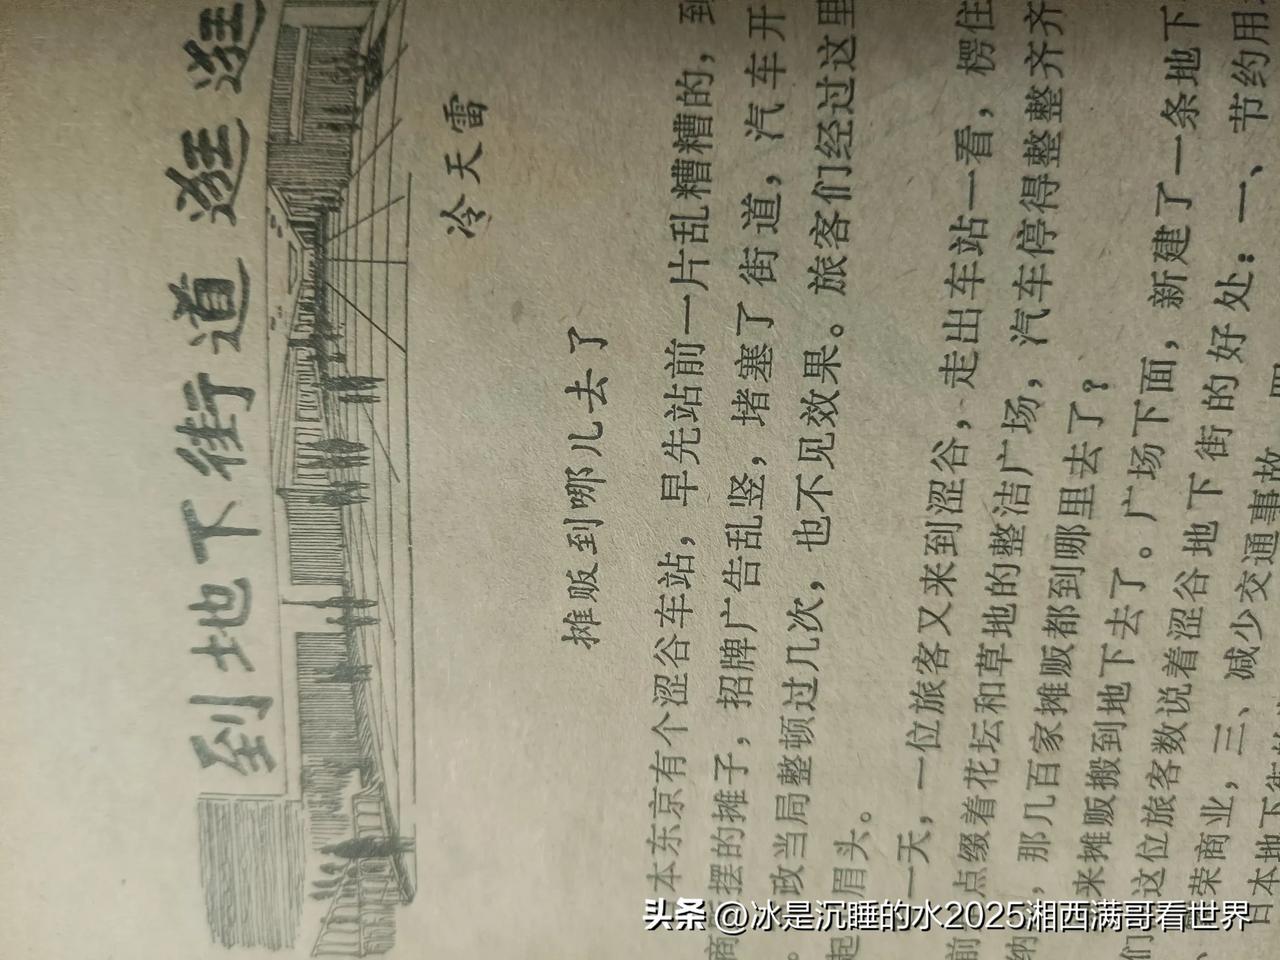 到地下街道逛逛
冷天雷
摊贩到哪儿去了
本东京有个涩谷车站，早先站前一片乱糟糟的，到
商摆的摊子，招牌广告乱竖，堵塞了街道，汽车开
。政当局整顿过几次，也不见效果。旅客们经过这里
起眉头。
一天，一位旅客又来到涩谷，走出车站一看，楞住
前点缀着花坛和草地的整洁广场，汽车停得整整齐齐
纳，那几百家摊贩都到哪里去了？
来摊贩搬到地下去了。广场下面，新建了一条地下
们这位旅客数说着涩谷地下街的好处：一、节约用
、荣商业，三、减少交通事故，
日本地下街
头条 @冰是沉睡的水2025湘西满哥看世界